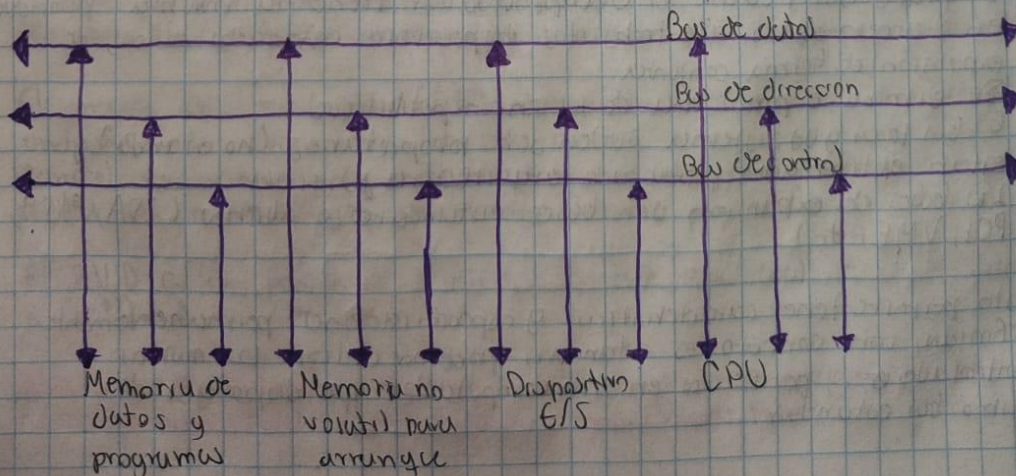 Bus de datos
Bus de dirección
Bus de control
Memoria de
datos y
programas
Memoria no
volatil para
arranque
Dispositivo
E/S
CPU